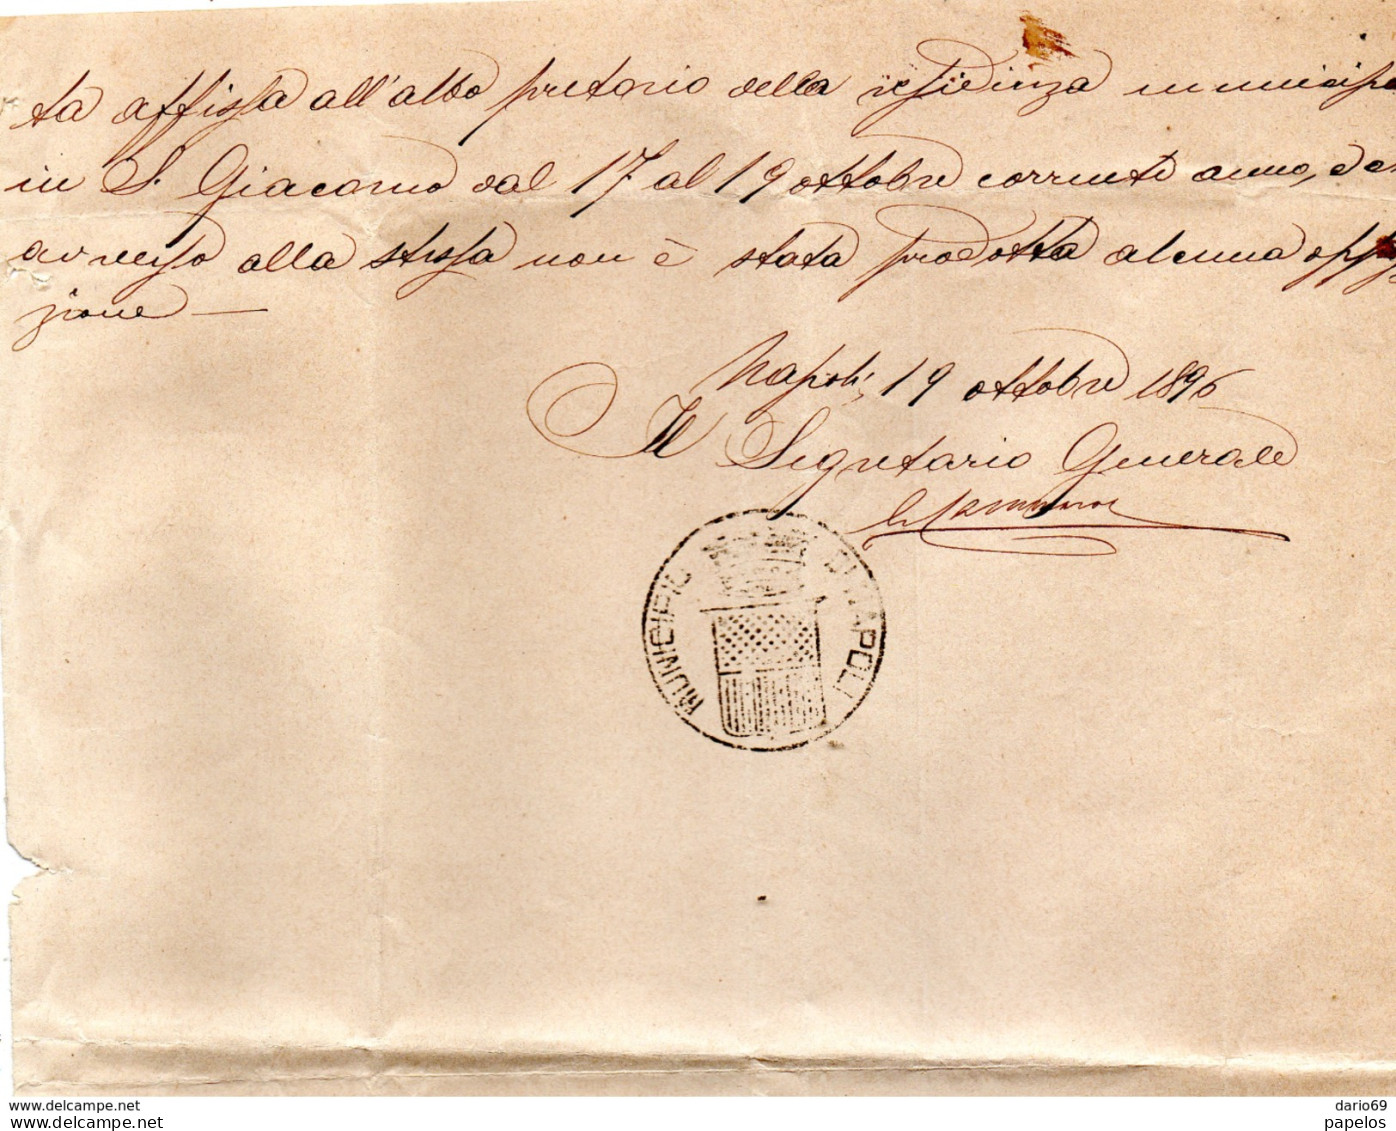 ta affissa all'albo pretorio della residenza municipa
in S. Giacomo dal 17 al 19 ottobre corrente anno, e
avverso alla stessa non è stata prodotta alcuna opposi
zione —
Napoli, 19 ottobre 1896
Il Segretario Generale
MUNICIPIO DI NAPOLI
www.delcampe.net
www.delcampe.net
dario69
papelos